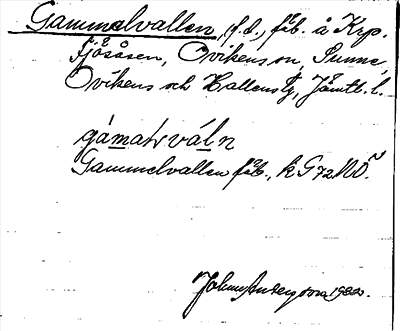 Gammelvallen, (f.d.) fäb. å Krp.
Sjösåsen, Ovikens sn, Sunne,
Ovikens och Hallens tg, Jämtl. l.
gámaLváln
Gammelvallen fäb., k G 72 NO.
Johan Anderzon 1930.